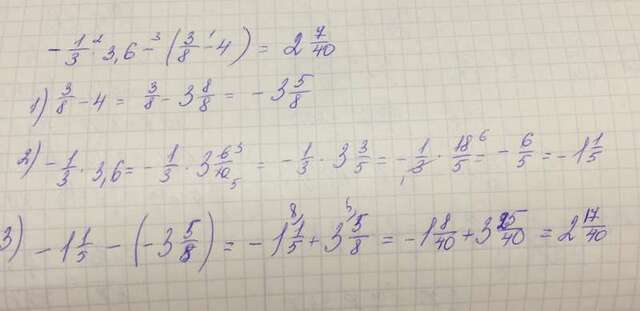 -1/3 · 3,6 - (3/8 - 4) = 2 7/40
1) 3/8 - 4 = 3/8 - 3 8/8 = -3 5/8
2) -1/3 · 3,6 = -1/3 · 3 6/10 = -1/3 · 3 3/5 = -1/3 · 18/5 = -6/5 = -1 1/5
3) -1 1/5 - (-3 5/8) = -1 1/5 + 3 5/8 = -1 8/40 + 3 25/40 = 2 17/40